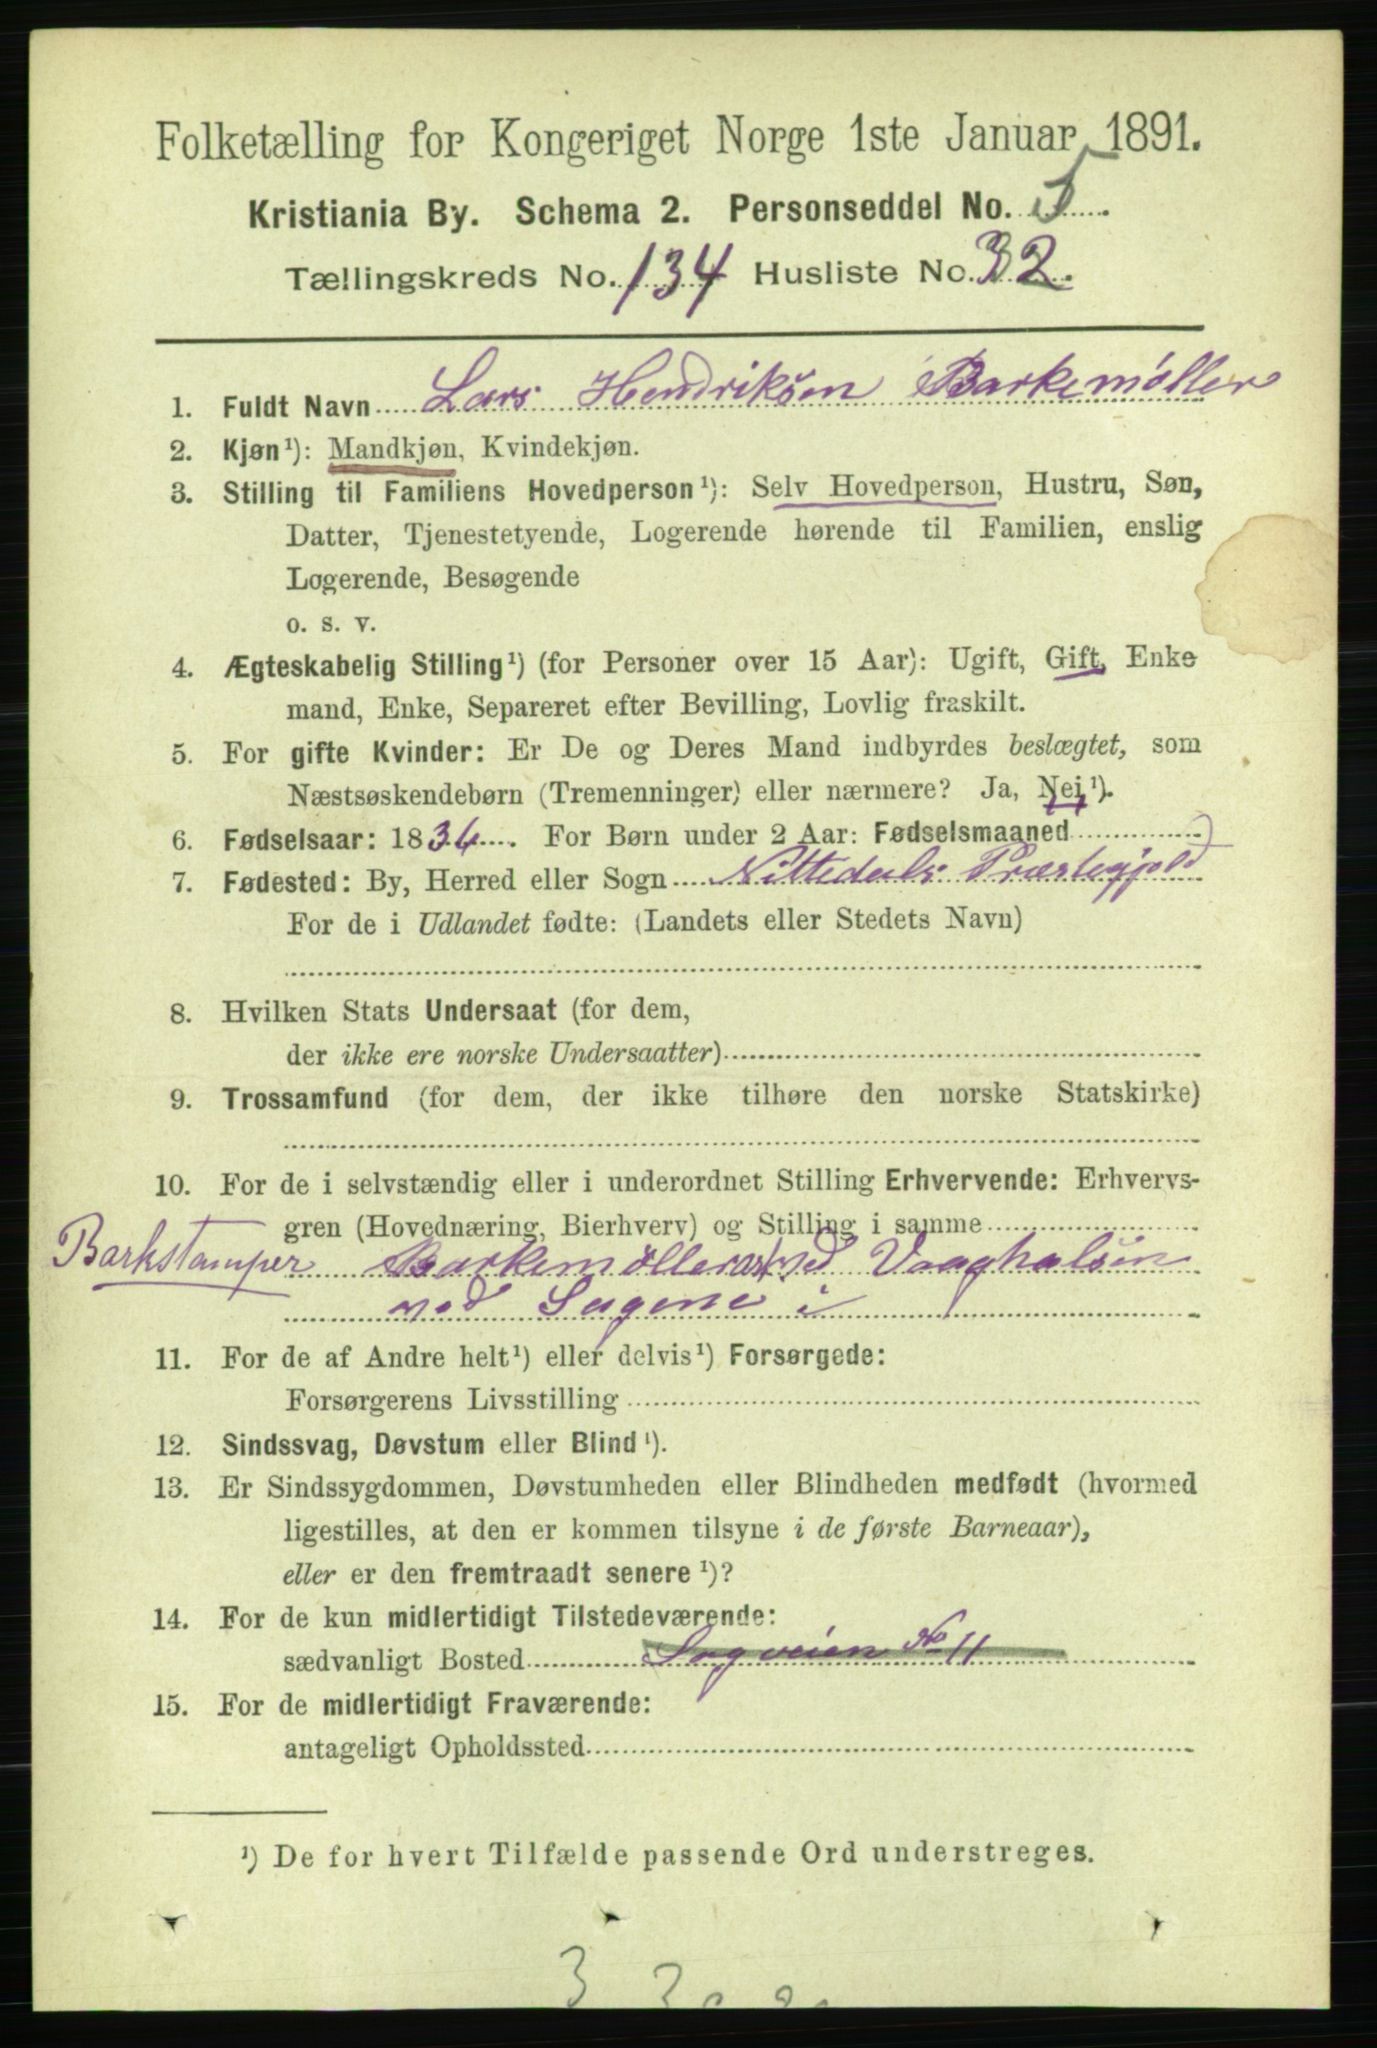 Folketælling for Kongeriget Norge 1ste Januar 1891.
Kristiania By. Schema 2. Personseddel No. 5
Tællingskreds No. 134 Husliste No. 32.
1. Fuldt Navn Lars Hendriksen Barkemøller
2. Kjøn¹): Mandkjøn, Kvindekjøn.
3. Stilling til Familiens Hovedperson¹): Selv Hovedperson, Hustru, Søn,
Datter, Tjenestetyende, Logerende hørende til Familien, enslig
Logerende, Besøgende
o. s. v.
4. Ægteskabelig Stilling¹) (for Personer over 15 Aar): Ugift, Gift, Enke
mand, Enke, Separeret efter Bevilling, Lovlig fraskilt.
5. For gifte Kvinder: Er De og Deres Mand indbyrdes beslægtet, som
Næstsøskendebørn (Tremenninger) eller nærmere? Ja, Nei¹).
6. Fødselsaar: 1836. For Børn under 2 Aar: Fødselsmaaned
7. Fødested: By, Herred eller Sogn Nittedals Præstegjeld
For de i Udlandet fødte: (Landets eller Stedets Navn)
8. Hvilken Stats Undersaat (for dem,
der ikke ere norske Undersaatter)
9. Trossamfund (for dem, der ikke tilhøre den norske Statskirke)
10. For de i selvstændig eller i underordnet Stilling Erhvervende: Erhvervs-
gren (Hovednæring, Bierhverv) og Stilling i samme
Barkstamper Barkemøller ved Vaaghalsen
ved Sagene i
11. For de af Andre helt¹) eller delvis¹) Forsørgede:
Forsørgerens Livsstilling
12. Sindssvag, Døvstum eller Blind¹).
13. Er Sindssygdommen, Døvstumheden eller Blindheden medfødt (hvormed
ligestilles, at den er kommen tilsyne i de første Barneaar),
eller er den fremtraadt senere¹)?
14. For de kun midlertidigt Tilstedeværende:
sædvanligt Bosted Sagveien No 11
15. For de midlertidigt Fraværende:
antageligt Opholdssted
¹) De for hvert Tilfælde passende Ord understreges.
3